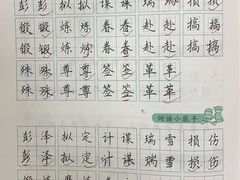 彭彭拟拟谋谋瑞瑞损损
锻锻炼炼春春赴赴搞搞
锻锻炼炼春春赴赴搞搞
殊殊尊尊签签革革
殊殊尊尊签签革革
词语小能手
彭泽拟定计谋瑞雪损伤
彭泽拟定计谋瑞雪损伤